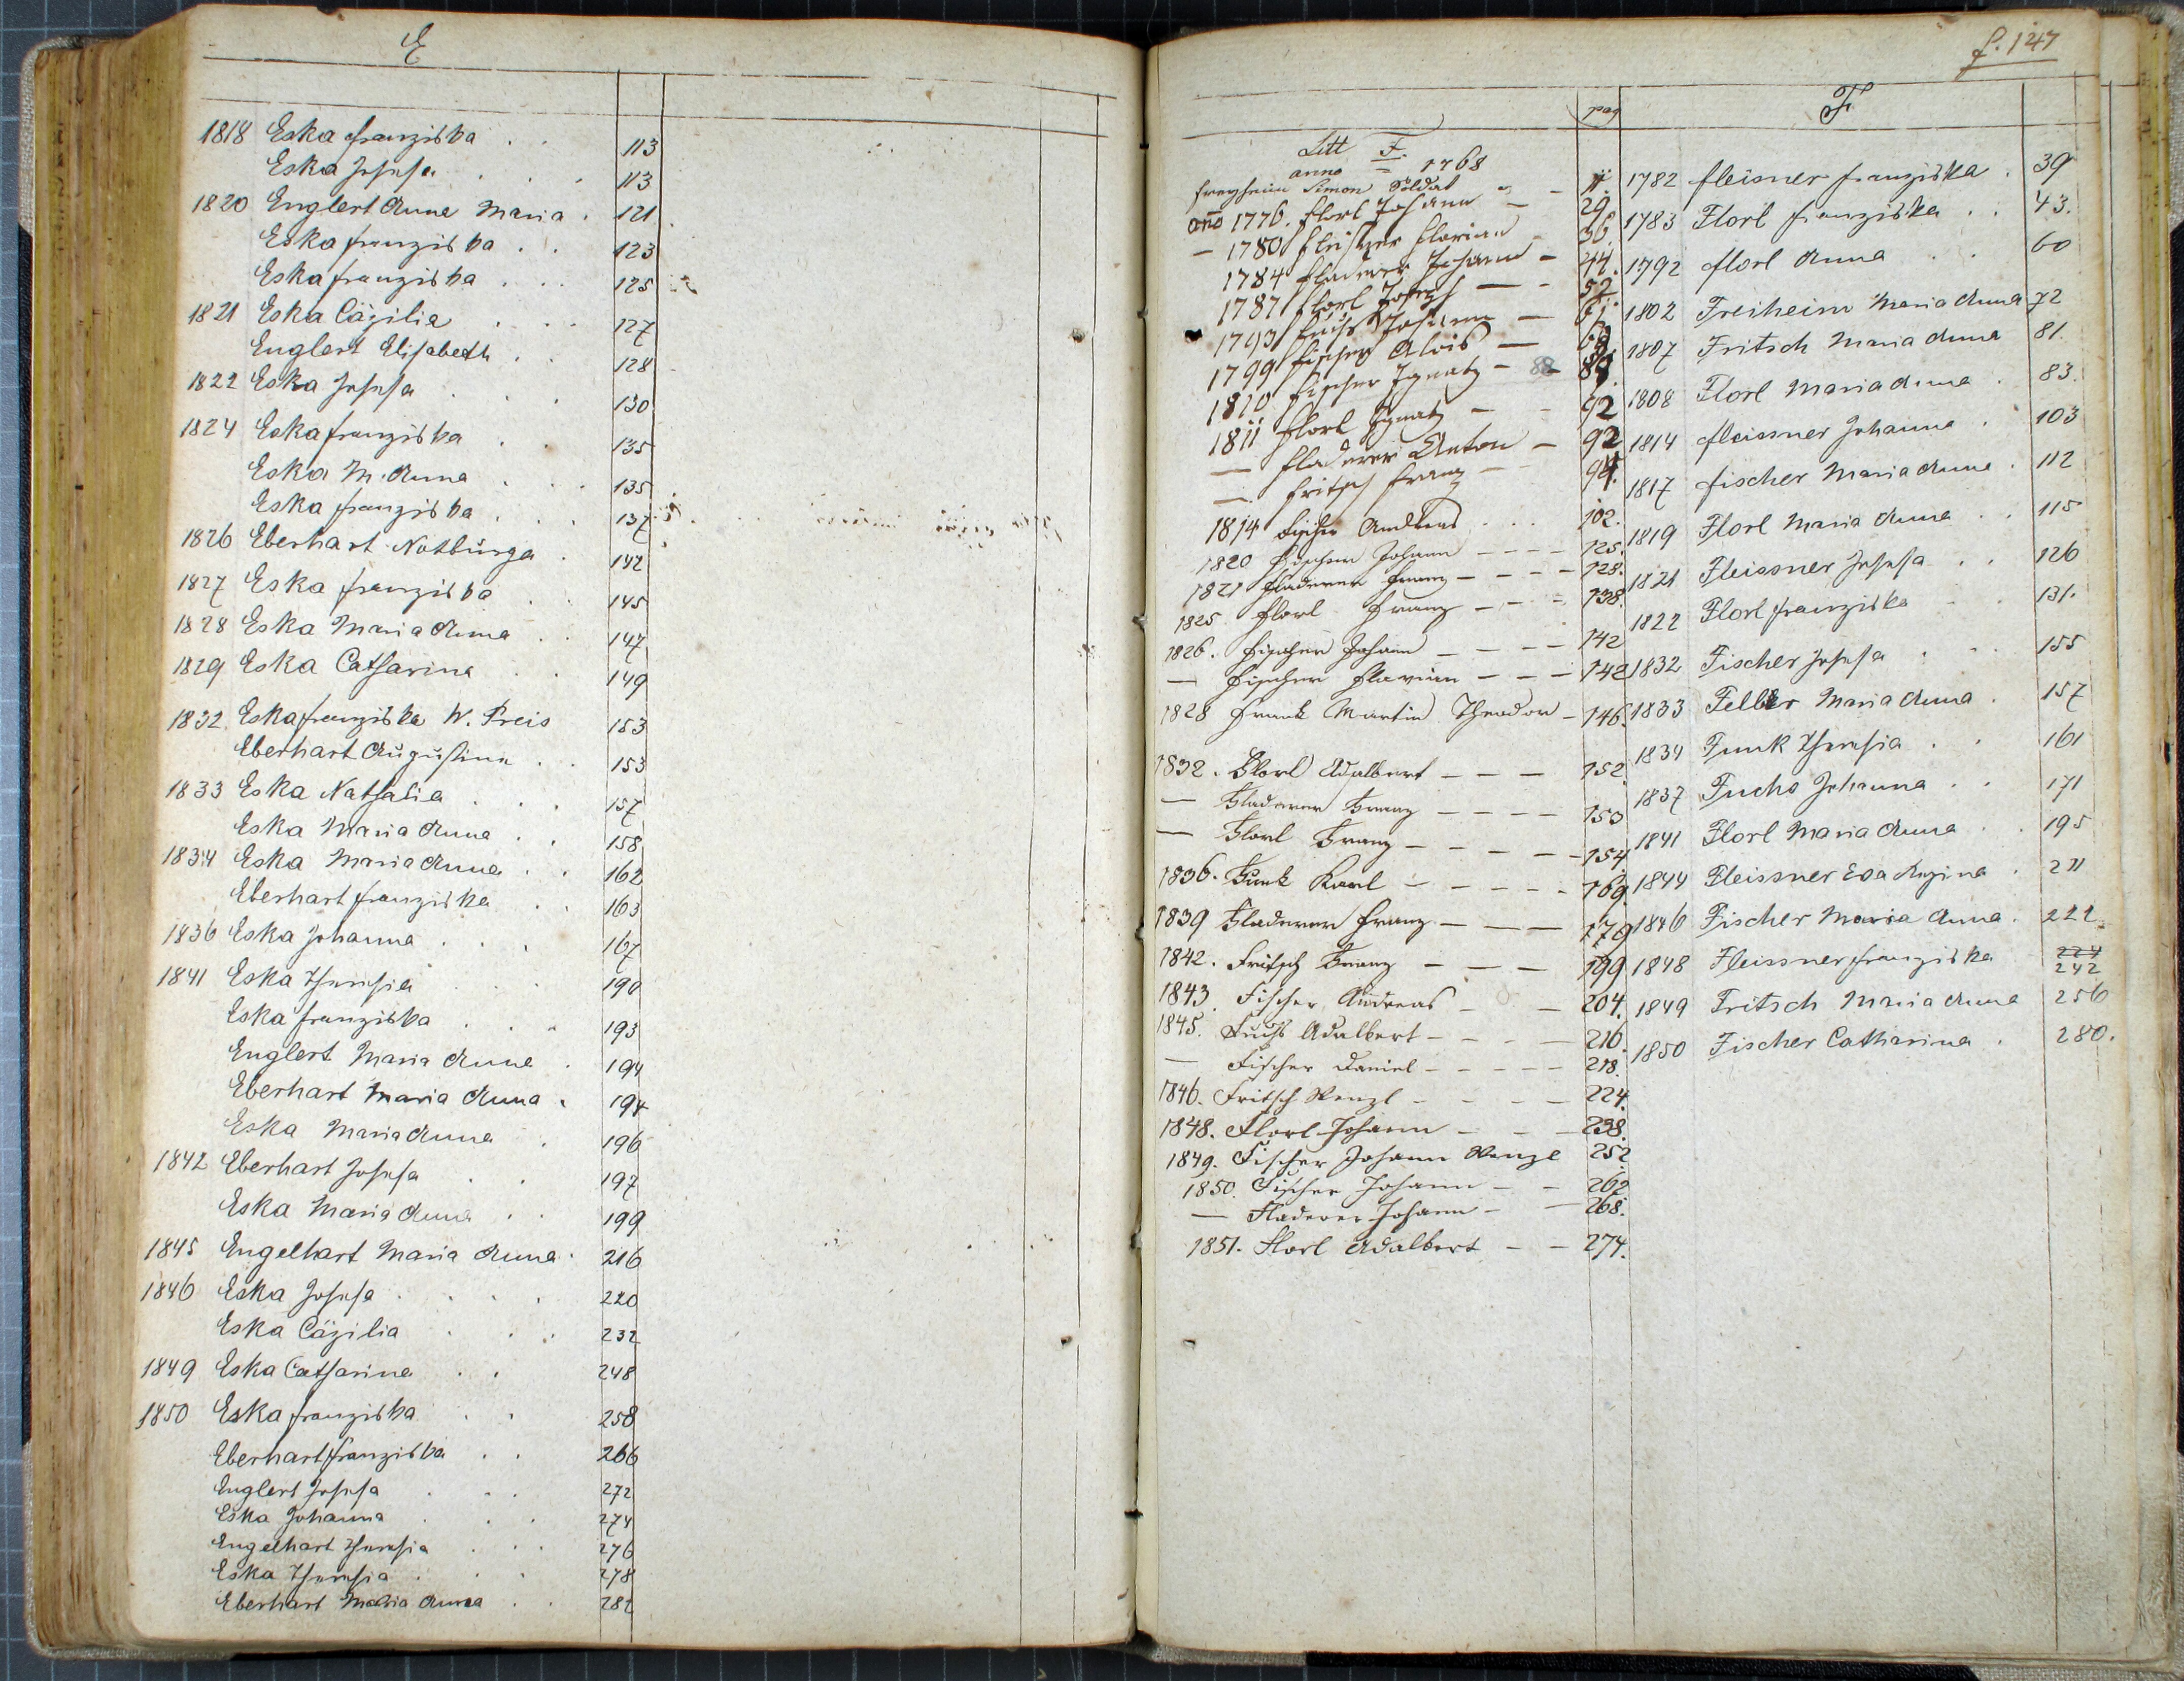 E
1818 Eska Franziska . . 113
Eska Josefa . . . 113
1820 Englert Anna Maria . 121
Eska Franziska . . 123
Eska Franziska . . . 125
1821 Eska Cäzilia . . . 127
Englert Elisabeth . . 128
1822 Eska Josefa . . . 130
1824 Eska Franziska . . 135
Eska M. Anna . . . 135
Eska Franziska . . . 137
1826 Eberhart Notburga . 142
1827 Eska Franziska . . 145
1828 Eska Maria Anna . . 147
1829 Eska Catharina . . 149
1832 Eska Franziska W. Preis 153
Eberhart Augustina . . 153
1833 Eska Nathalia . . . 157
Eska Maria Anna . . 158
1834 Eska Maria Anna . . 162
Eberhart Franziska . . 163
1836 Eska Johanna . . . 167
1841 Eska Theresia . . . 190
Eska Franziska . . . 193
Englert Maria Anna . 194
Eberhart Maria Anna . 194
Eska Maria Anna . 196
1842 Eberhart Josefa . . 197
Eska Maria Anna . . 199
1845 Engelhart Maria Anna . 216
1846 Eska Josefa . . . . 220
Eska Cäzilia . . . 232
1849 Eska Catharina . . 248
1850 Eska Franziska . . 258
Eberhart Franziska . . 266
Englert Josefa . . . 272
Eska Johanna . . . 274
Engelhart Theresia . . . 276
Eska Theresia . . . 278
Eberhart Maria Anna . . 282
f. 147
pag
Litt F.
anno 1768
Freyheim Simon Soldat - 11.
año 1776. Florl Johann - 29.
- 1780 Florian - 36.
1784 Fladerer Johann - 44.
1787 Florl Joseph - 52
1793 Johann - 61
1799 Fischer Alois -
1810 Fischer Ignatz - 88
1811 Florl Ignatz - 92
- Fladerer Anton - 92
- Fritsch Franz - 94.
1814 Fischer Andreas . . . 102.
1820 Fischer Johann - - - - 125.
1821 Fladerer Franz - - - - 128.
1825 Florl Franz - - - 138.
1826. Fischer Johann - - - - 142
- Fischer Florian - - - 142
1828 Frank Martin Theodor - 146
1832. Florl Adalbert - - - 152
- Fladerer Franz - - - - 153
- Florl Franz - - - - - 154.
1836. Funk Karl - - - - - 169.
1839 Fladerer Franz - - - 179
1842. Fritsch Franz - - - 199
1843. Fischer Andreas - - 204.
1845. Fuchs Adalbert - - - - 216.
- Fischer Daniel - - - - - 218.
1846. Fritsch Wenzl - - - - 224.
1848. Florl Johann - - - 238.
1849. Fischer Johann Wenzl 252
1850. Fischer Johann - - 262
- Fladerer Johann - - 268.
1851. Florl Adalbert - - 274.
F
1782 Fleisner Franziska . 39
1783 Florl Franziska . . 43.
1792 Florl Anna . . 60
1802 Freiheim Maria Anna 72
1807 Fritsch Maria Anna 81.
1808 Florl Maria Anna . 83.
1814 Fleissner Johanna . 103
1817 Fischer Maria Anna . 112
1819 Florl Maria Anna . . 115
1821 Fleissner Josefa . . 126
1822 Florl Franziska . . 131.
1832 Fischer Josefa . . . 155
1833 Felber Maria Anna . 157
1834 Funk Theresia . . 161
1837 Fuchs Johanna . . 171
1841 Florl Maria Anna . . 195
1844 Fleissner Eva Regina . 211
1846 Fischer Maria Anna . 222
1848 Fleissner Franziska 224
242
1849 Fritsch Maria Anna 256
1850 Fischer Catharina . 280.